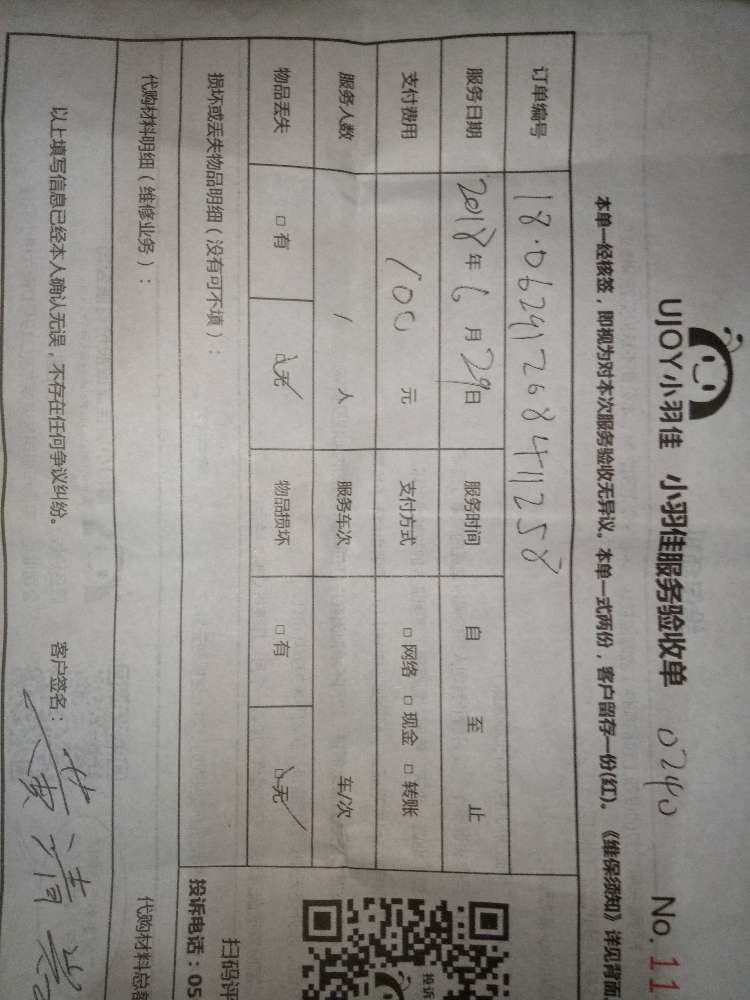 UJOY小羽佳 小羽佳服务验收单 0240 No. 11
本单一经核签，即视为对本次服务验收无异议。本单一式两份，客户留存一份(红)。《维保须知》详见背面
订单编号 18.062912684411258
服务日期 2018年6月29日 服务时间 自 至 止
支付费用 100元 支付方式 □网络 □现金 □转账
服务人数 / 人 服务车次 车/次
物品丢失 □有 □无 物品损坏 □有 □无
损坏或丢失物品明细（没有可不填）：
代购材料明细（维修业务）： 代购材料总
以上填写信息已经本人确认无误，不存在任何争议纠纷。 客户签名： 黄清
投诉
扫码评
投诉电话：05